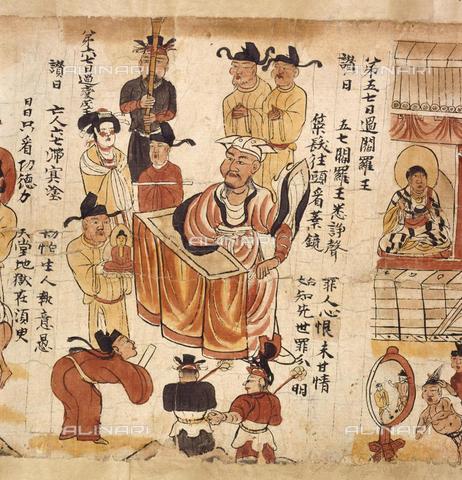 第五七日過閻羅王
讚曰 五七閻羅王悉諍聲
罪人心恨未甘情
策髮往頭看業鏡
始知先世罪分明
第六七日過變成
讚曰 亡人六七滯冥塗
切怕生人執意愚
日日只看功德力
天堂地獄在須臾
ALINARI
ALINARI
ALINARI
ALINARI
ALINARI
ALINARI